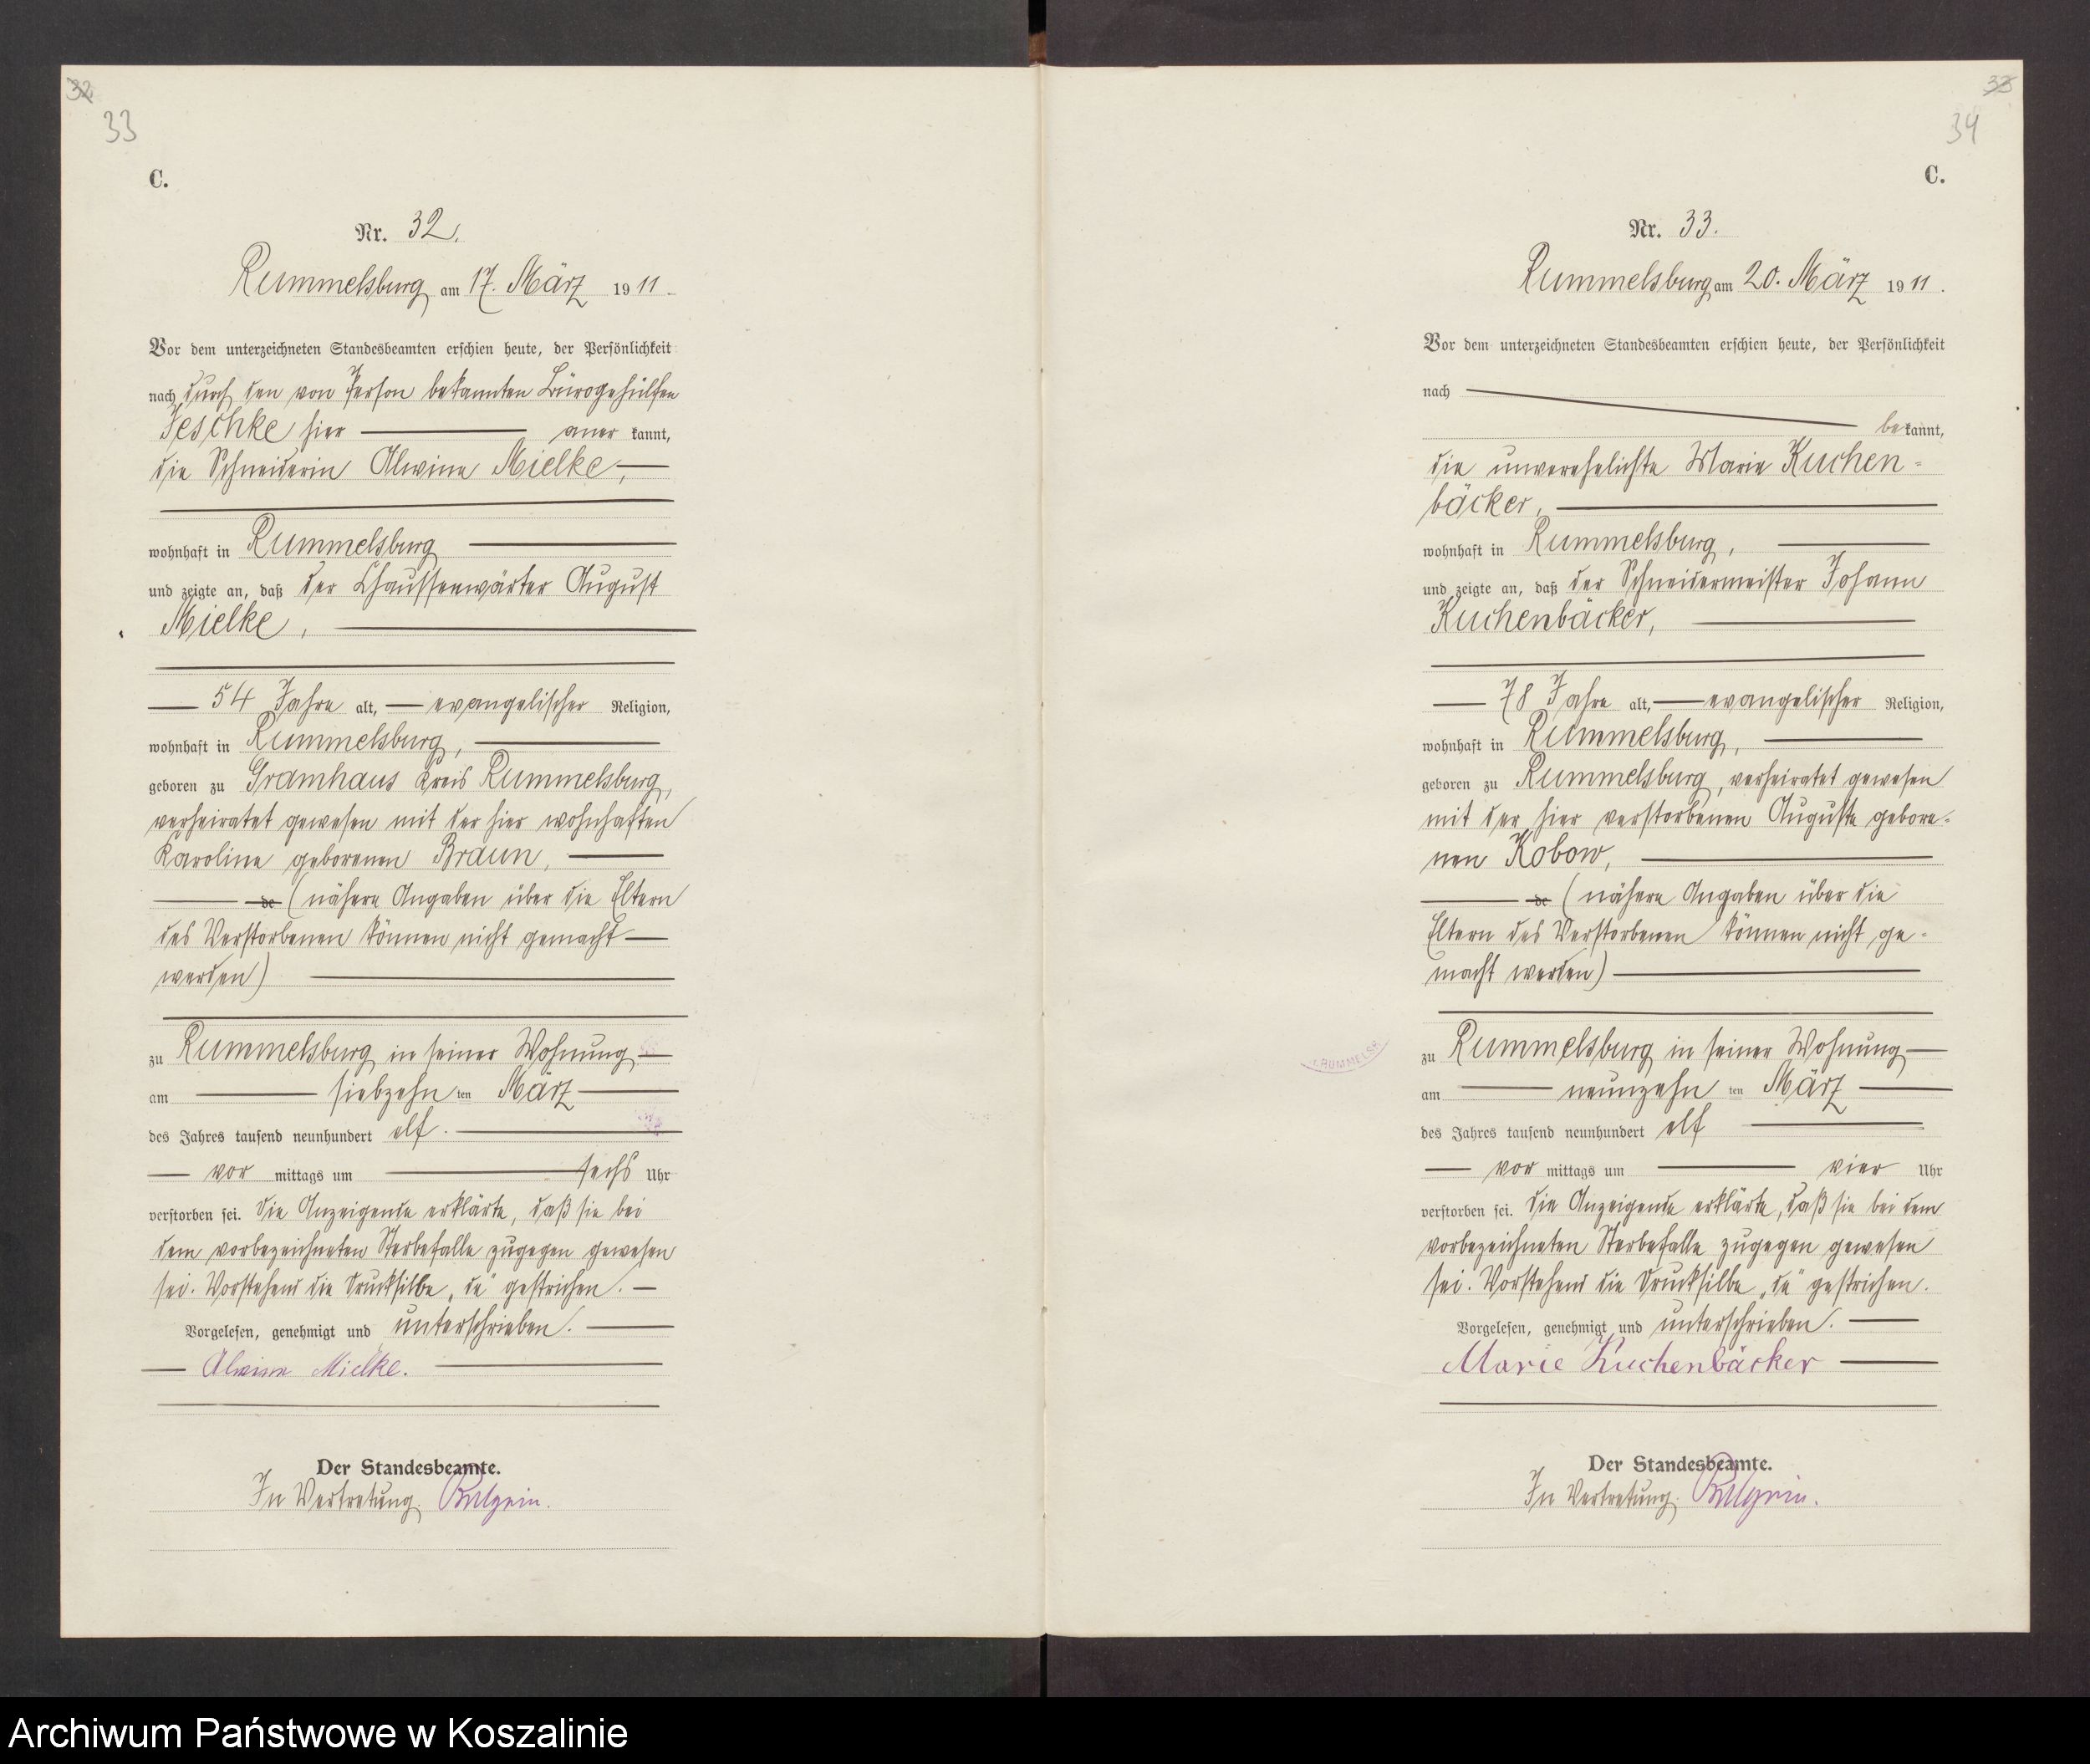 32
33
C.
Nr. 32.
Rummelsburg am 17. März 1911
Vor dem unterzeichneten Standesbeamten erschien heute, der Persönlichkeit
nach durch den von Person bekannten Bürogehülfen
Jeschke hier aner kannt,
die Schneiderin Alwine Mielke,
wohnhaft in Rummelsburg
und zeigte an, daß der Chausseewärter August
Mielke,
54 Jahre alt, evangelischer Religion,
wohnhaft in Rummelsburg,
geboren zu Gramhaus Kreis Rummelsburg,
verheiratet gewesen mit der hier wohnhaften
Karoline geborenen Braun,
de (nähere Angaben über die Eltern
des Verstorbenen können nicht gemacht
werden)
zu Rummelsburg in seiner Wohnung
am siebzehn ten März
des Jahres tausend neunhundert elf.
vor mittags um sechs Uhr
verstorben sei. Die Anzeigende erklärte, daß sie bei
dem vorbezeichneten Sterbefalle zugegen gewesen
sei. Vorstehend die Drucksilbe „de" gestrichen.
Vorgelesen, genehmigt und unterschrieben.
Alwine Mielke.
Der Standesbeamte.
In Vertretung.
33
34
C.
Nr. 33.
Rummelsburg am 20. März 1911.
Vor dem unterzeichneten Standesbeamten erschien heute, der Persönlichkeit
nach
bekannt,
die unverehelichte Marie Kuchen-
bäcker,
wohnhaft in Rummelsburg,
und zeigte an, daß der Schneidermeister Johann
Kuchenbäcker,
78 Jahre alt, evangelischer Religion,
wohnhaft in Rummelsburg,
geboren zu Rummelsburg, verheiratet gewesen
mit der hier verstorbenen Auguste gebore-
nen Kobow,
de (nähere Angaben über die
Eltern des Verstorbenen können nicht ge-
macht werden)
zu Rummelsburg in seiner Wohnung
am neunzehn ten März
des Jahres tausend neunhundert elf
vor mittags um vier Uhr
verstorben sei. Die Anzeigende erklärte, daß sie bei dem
vorbezeichneten Sterbefalle zugegen gewesen
sei. Vorstehend die Drucksilbe „de" gestrichen.
Vorgelesen, genehmigt und unterschrieben.
Marie Kuchenbäcker
Der Standesbeamte.
In Vertretung.
Archiwum Państwowe w Koszalinie